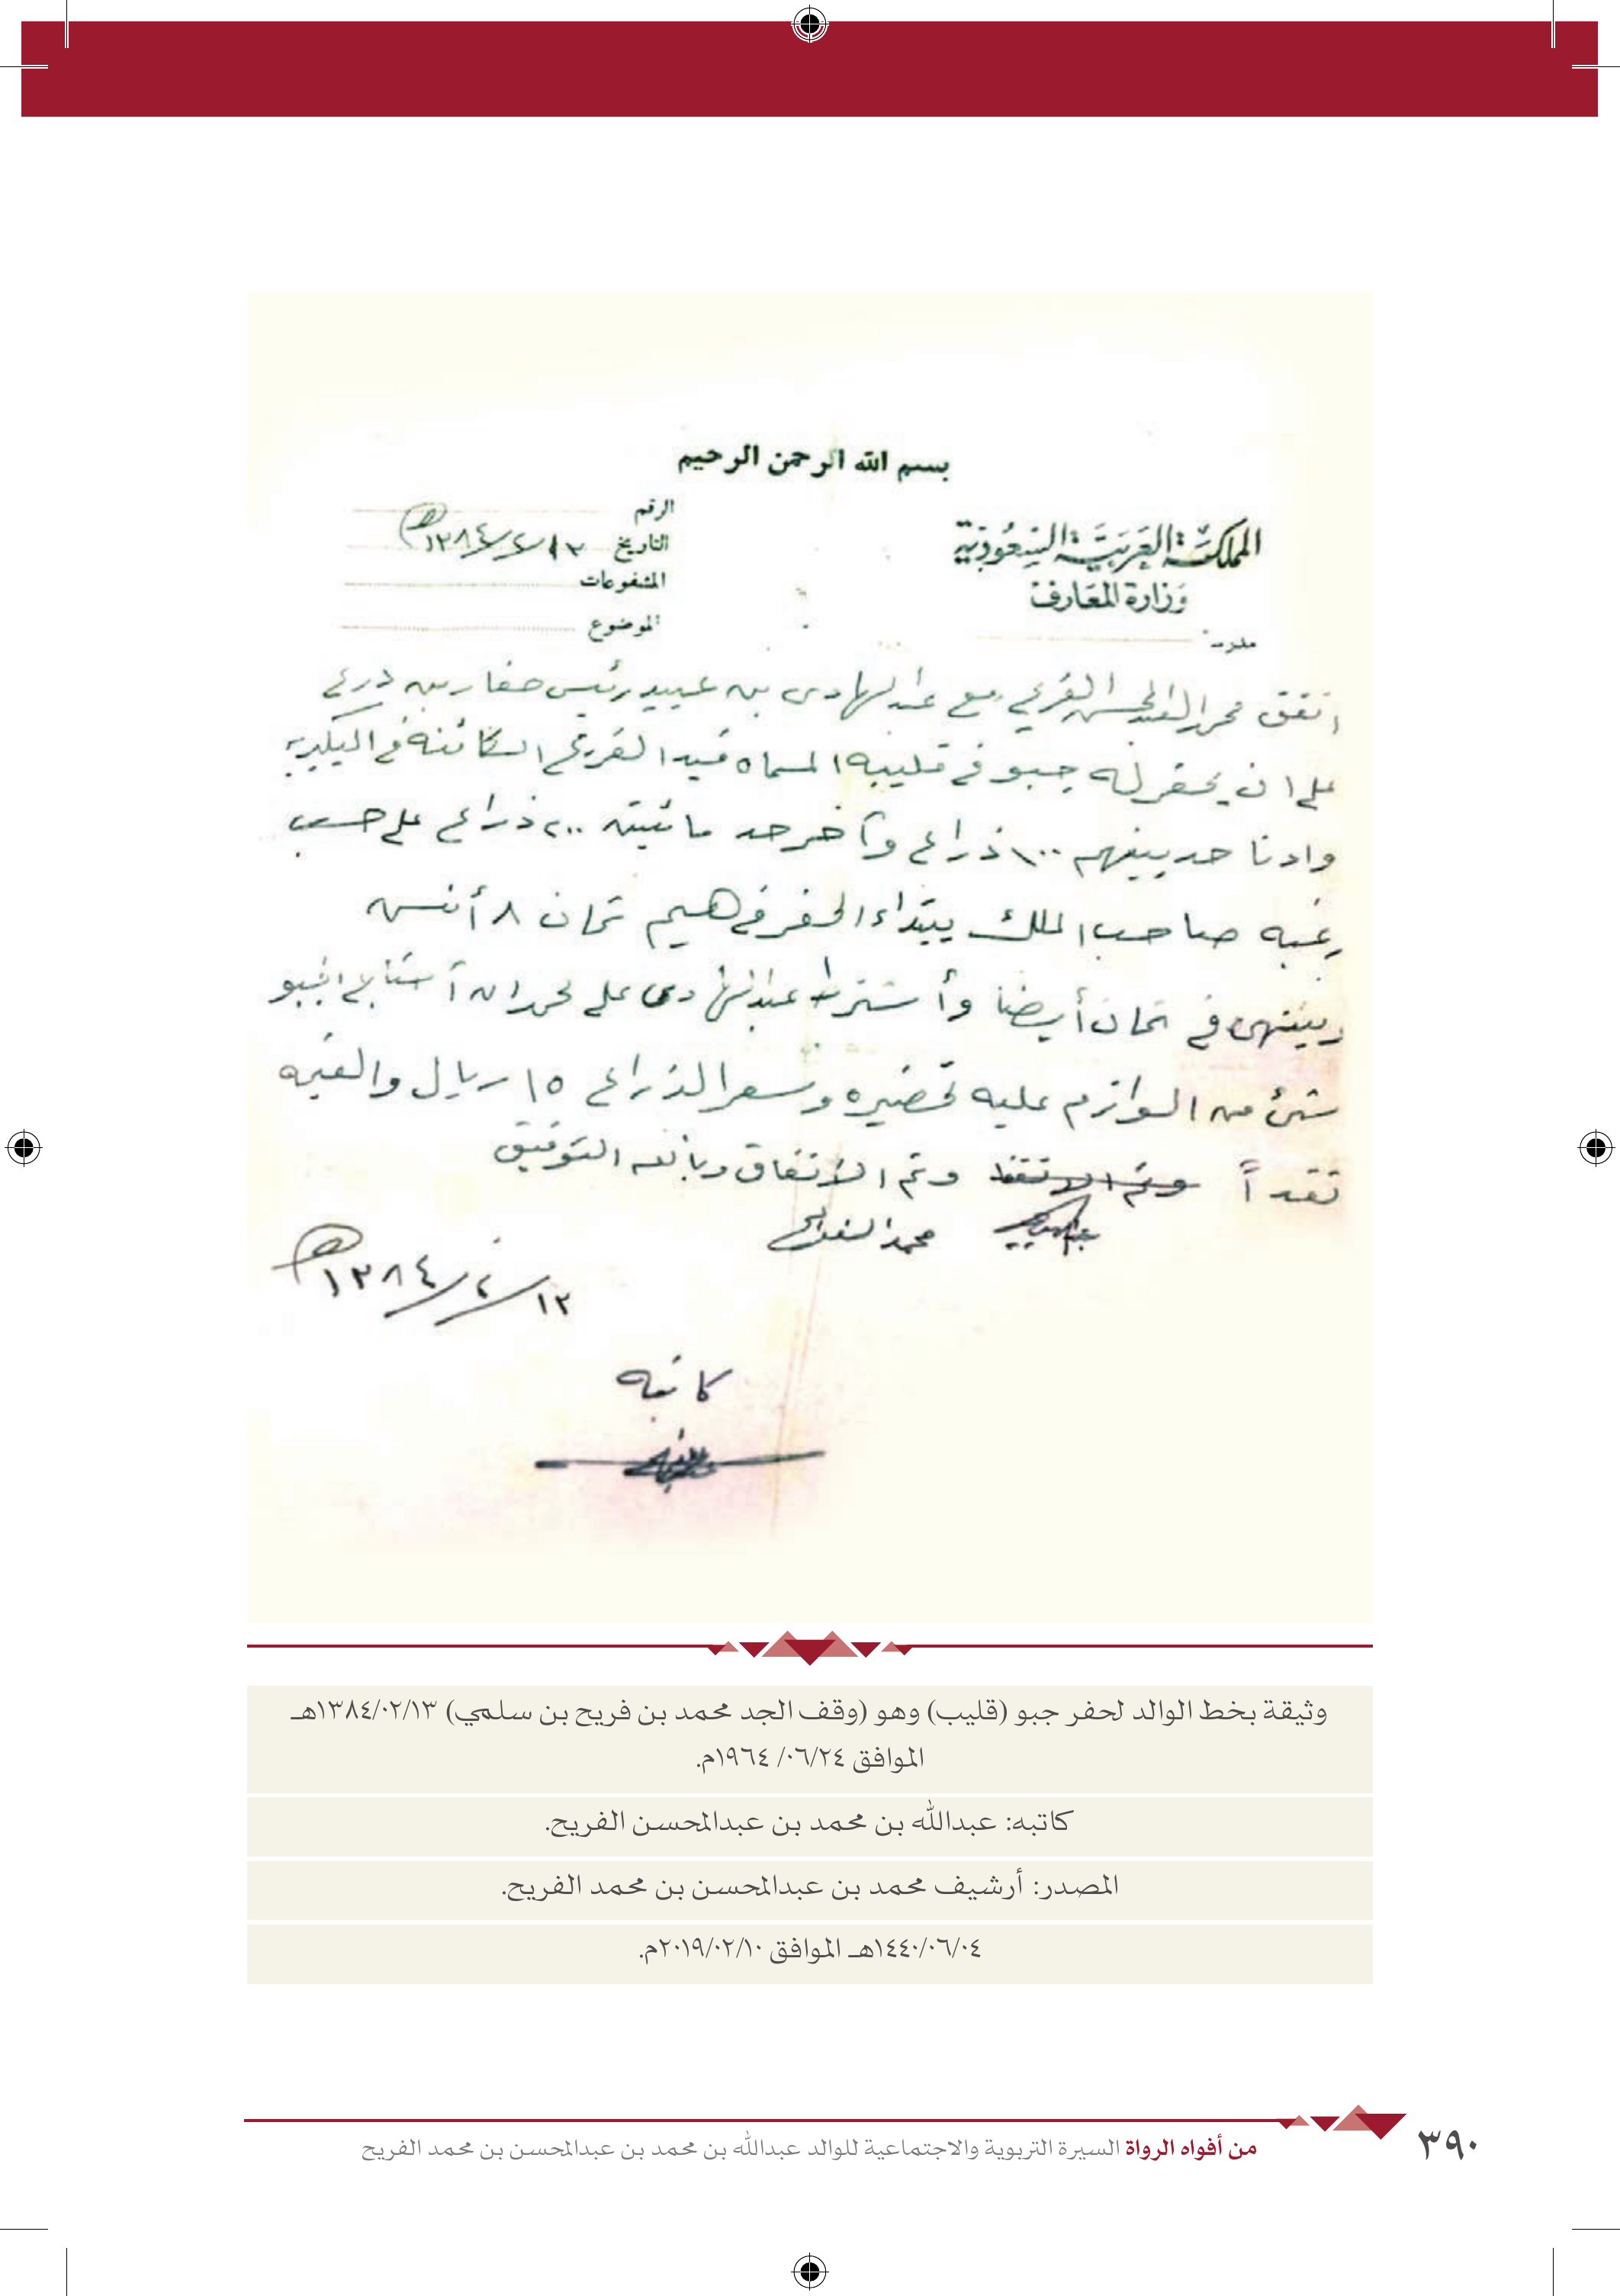 بسم الله الرحمن الرحيم
المملكة العربية السعودية
وزارة المعارف
مدرسة
الرقم
التاريخ ١٣/٢/١٣٨٤هـ
المشفوعات
الموضوع
اتفق محمد العبدالمحسن الفريح مع عبدالهادي بن عبيد رئيس حفارين
على ان يحفر له جبو في قليبه المسماه فيد الفريح الكائنه في البكيريه
وادنا حد بينهم ١٠٠ ذراع وآخر حد مائتين ٢٠٠ ذراع على حسب
رغبه صاحب الملك يبتداء الحفر في هيم ثمان ٨ أنس
وينتهي في ثمان أيضا وأشترط عبدالهادي على محمد ان الجبو
شئ من الوازم عليه تحضيره وسعر الذراع ١٥ ريال والقيمه
نقداً وتم الاتفاق وبالله التوفيق
محمد الفريح
١٣/٢/١٣٨٤هـ
كاتبه
وثيقة بخط الوالد لحفر جبو (قليب) وهو (وقف الجد محمد بن فريح بن سلمي) ١٣٨٤/٠٢/١٣هـ
الموافق ٠٦/٢٤/ ١٩٦٤م.
كاتبه: عبدالله بن محمد بن عبدالمحسن الفريح.
المصدر: أرشيف محمد بن عبدالمحسن بن محمد الفريح.
١٤٤٠/٠٦/٠٤هـ الموافق ٢٠١٩/٠٢/١٠م.
من أفواه الرواة السيرة التربوية والاجتماعية للوالد عبدالله بن محمد بن عبدالمحسن بن محمد الفريح
٣٩٠